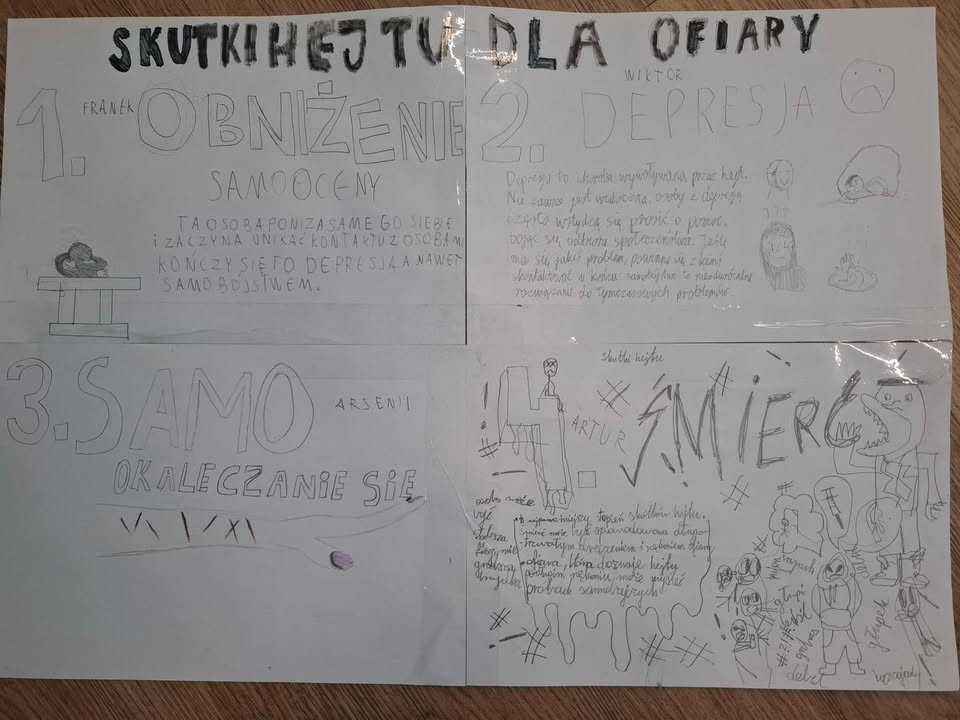 SKUTKI HEJTU DLA OFIARY
1. FRANEK OBNIŻENIE
SAMOOCENY
TA OSOBA PONIZA SAME GO SIEBIE
I ZACZYNA UNIKAĆ KONTAKTU Z OSOBAMI
KOŃCZY SIĘ TO DEPRESJĄ A NAWET
SAMOBÓJSTWEM.
WIKTOR
2. DEPRESJA
Depresja to choroba wywoływana przez hejt.
Nie zawsze jest widoczna, osoby z depresją
często wstydzą się prosić o pomoc,
bojąc się odbioru społeczeństwa. Jeśli
ma się jakiś problem, powinno się z kimś
skontaktować w końcu samobójstwo to nieodwracalne
rozwiązanie do tymczasowych problemów.
3. SAMO
ARSENII
OKALECZANIE SIĘ
skutki hejtu
4. ARTUR ŚMIERĆ
osoba może
być
to najpoważniejszy stopień skutków hejtu.
śmierć może być spowodowana długo-
trwałym dręczeniem i nękaniem ofiary
ofiara, która doznaje hejtu
może myśleć
próbach samobójczych
głupi
głupek
debil